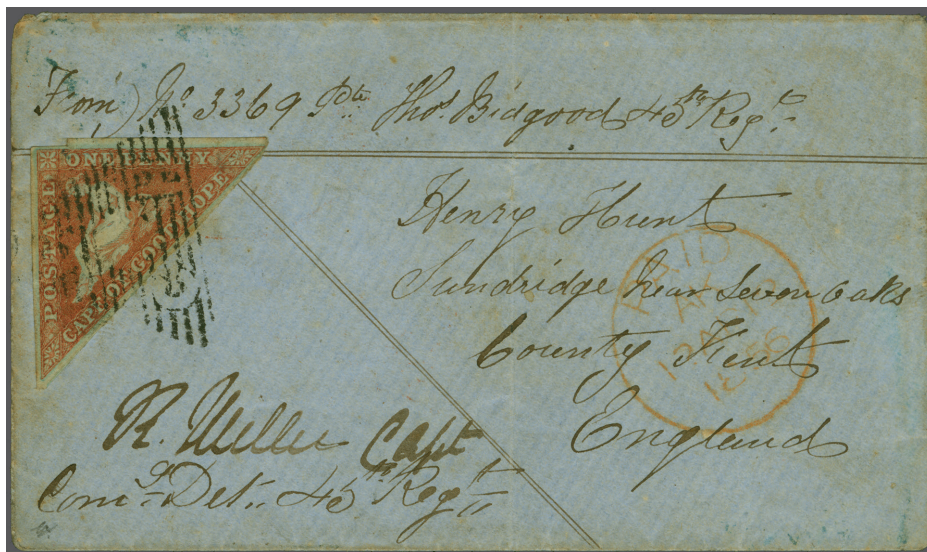 From, No. 3369 Pte. Thos. Bidgood 45th Regt.
ONE PENNY
POSTAGE
CAPE OF GOOD HOPE
Henry Hunt
Sundridge near Seven Oaks
County Kent
England
PAID
R. Miller Capt
Comg. Det. 45th Regt